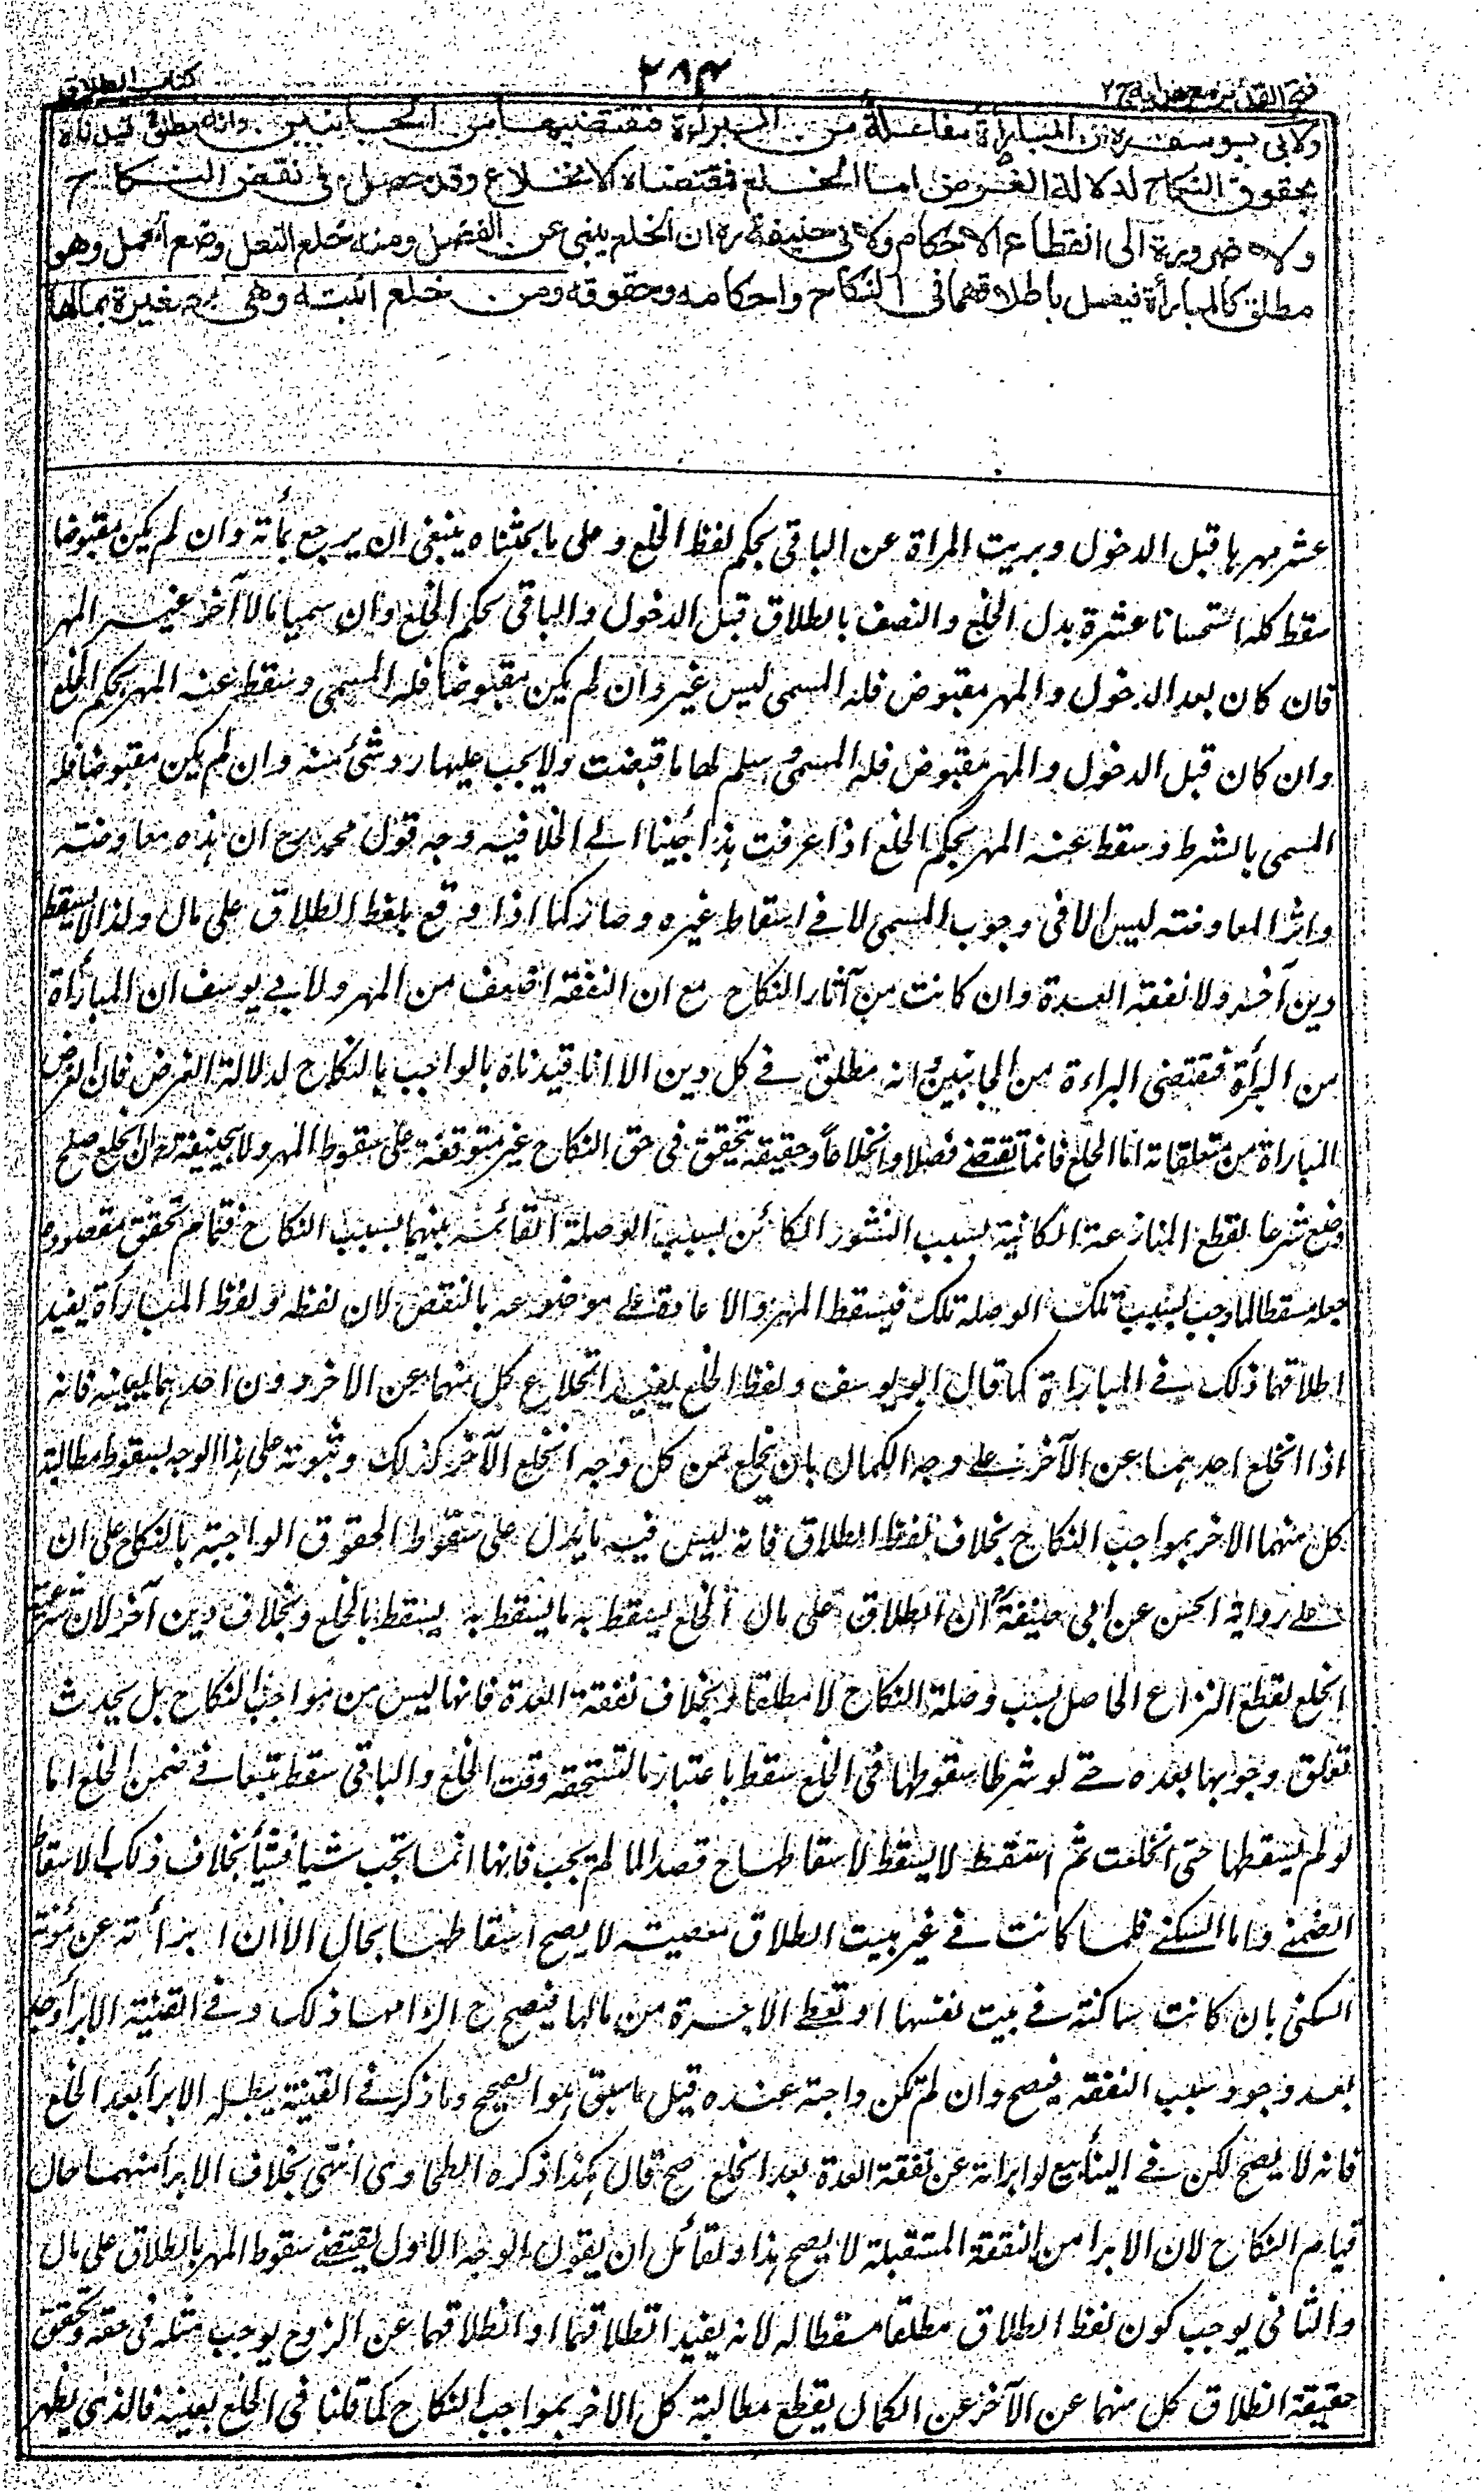 كتاب الطلاق
٢٨٤
فتح القدير مع هداية ج٢
ولابي يوسف ره ان المبارأة مفاعلة من البراءة فتقتضيها من الجانبين وانه مطلق قيدناه
بحقوق النكاح لدلالة الغرض اما الخلع فمقتضاه الانخلاع وقد حصل في نقض النكاح
ولا ضرورة الى انقطاع الاحكام ولابي حنيفة ره ان الخلع ينبئ عن الفصل ومنه خلع النعل وخلع العمل وهو
مطلق كالمبارأة فيعمل باطلاقهما في النكاح واحكامه وحقوقه ومن خلع ابنته وهي صغيرة بمالها
عشر مهرها قبل الدخول وبريت المراة عن الباقي بحكم لفظ الخلع وعلى ما بحثناه ينبغي ان يرجع بمأته وان لم يكن مقبوضا
سقط كله استحسانا عشرة بدل الخلع والنصف بالطلاق قبل الدخول والباقي بحكم الخلع وان سميا مالا آخر غير المهر
فان كان بعد الدخول والمهر مقبوض فله المسمى ليس غير وان لم يكن مقبوضا فله المسمى وسقط عنه المهر بحكم الخلع
وان كان قبل الدخول والمهر مقبوض فله المسمى وسلم لها ما قبضت ولا يجب عليها رد شئ منه وان لم يكن مقبوضا فله
المسمى بالشرط وسقط عنه المهر بحكم الخلع اذا عرفت هذا جئنا الى الخلافية وجه قول محمد رح ان هذه معاوضة
واثر المعاوضة ليس الا في وجوب المسمى لا في اسقاط غيره وصار كما اذا وقع بلفظ الطلاق على مال ولذا لا يسقط
دين آخر ولا نفقة العدة وان كانت من آثار النكاح مع ان النفقة اضعف من المهر ولابي يوسف ان المبارأة
من البرأة فتقتضي البراءة من الجانبين وانه مطلق في كل دين الا انا قيدناه بالواجب بالنكاح لدلالة الغرض فان الغرض
المباراة من متعلقاته اما الخلع فانما تقتضي فصلا وانخلاعاً وحقيقة تحقق في حق النكاح غير متوقفة على سقوط المهر ولابيحنيفة رح ان الخلع صلح
وضع شرعا لقطع المنازعة الكائنة بسبب النشوز الكائن بسبب الوصلة القائمة بينهما بسبب النكاح فتمام تحقق مقصوده
جعله مسقطا لما وجب بسبب تلك الوصلة تلك فيسقط المهر والا عاد على موضوعه بالنقض لان لفظه ولفظ المبارأة يفيد
اطلاقهما ذلك في المباراة كما قال ابو يوسف ولفظ الخلع يفيد انخلاع كل منهما عن الاخر دون احدهما بعينه فانه
اذا انخلع احدهما عن الآخر على وجه الكمال بان يخلع من كل وجه انخلع الآخر كذلك وثبوته على هذا الوجه بسقوط مطالبة
كل منهما الاخر بمواجب النكاح بخلاف لفظ الطلاق فانه ليس فيه ما يدل على سقوط الحقوق الواجبة بالنكاح على ان
على رواية الحسن عن ابي حنيفة رح ان الطلاق على مال الخلع يسقط به ما يسقط به يسقط بالخلع وبخلاف دين آخر لان شرعية
الخلع لقطع النزاع الحاصل بسبب وصلة النكاح لا مطلقا وبخلاف نفقة العدة فانها ليس من مواجب النكاح بل يحدث
تعلق وجوبها بعده حتى لو شرطا سقوطها في الخلع سقط باعتبار ما تستحقه وقت الخلع والباقي سقط تبعا في ضمن الخلع اما
لو لم يسقطها حتى انخلعت ثم اسقط لا يسقط لاسقاطها ح قصدا لما لم يجب فانها انما تجب شيا فشيأ بخلاف ذلك الاسقاط
الضمني واما السكنى فلما كانت في غير بيت الطلاق معصية لا يصح اسقاطها بحال الا ان ابرأته عن مؤنة
السكنى بان كانت ساكنة في بيت نفسها او تعطي الاجرة من مالها فيصح ح الزامها ذلك وفي القنية الابرأ وجد
بعد وجود سبب النفقة فيصح وان لم تكن واجبة عنده قيل ما سبق هو الصحيح وما ذكر في القنية يبطله الابرأ بعد الخلع
فانه لا يصح لكن في الينابيع لو ابراته عن نفقة العدة بعد الخلع صح قال هكذا ذكره الطحاوي انتهى بخلاف الابرأ منهما حال
قيام النكاح لان الابرا من النفقة المستقبلة لا يصح هذا ولقائل ان يقول الوجه الاول يقتضي سقوط المهر بالطلاق على مال
والثاني يوجب كون لفظ الطلاق مطلقا مسقطا له لانه يفيد انطلاقها او انطلاقهما عن الزوج يوجب مثله في حقه وتحقق
حقيقة انطلاق كل منهما عن الآخر عن الكمال يقطع مطالبة كل الاخر بمواجب النكاح كما قلنا في الخلع بعينه فالذي يظهر